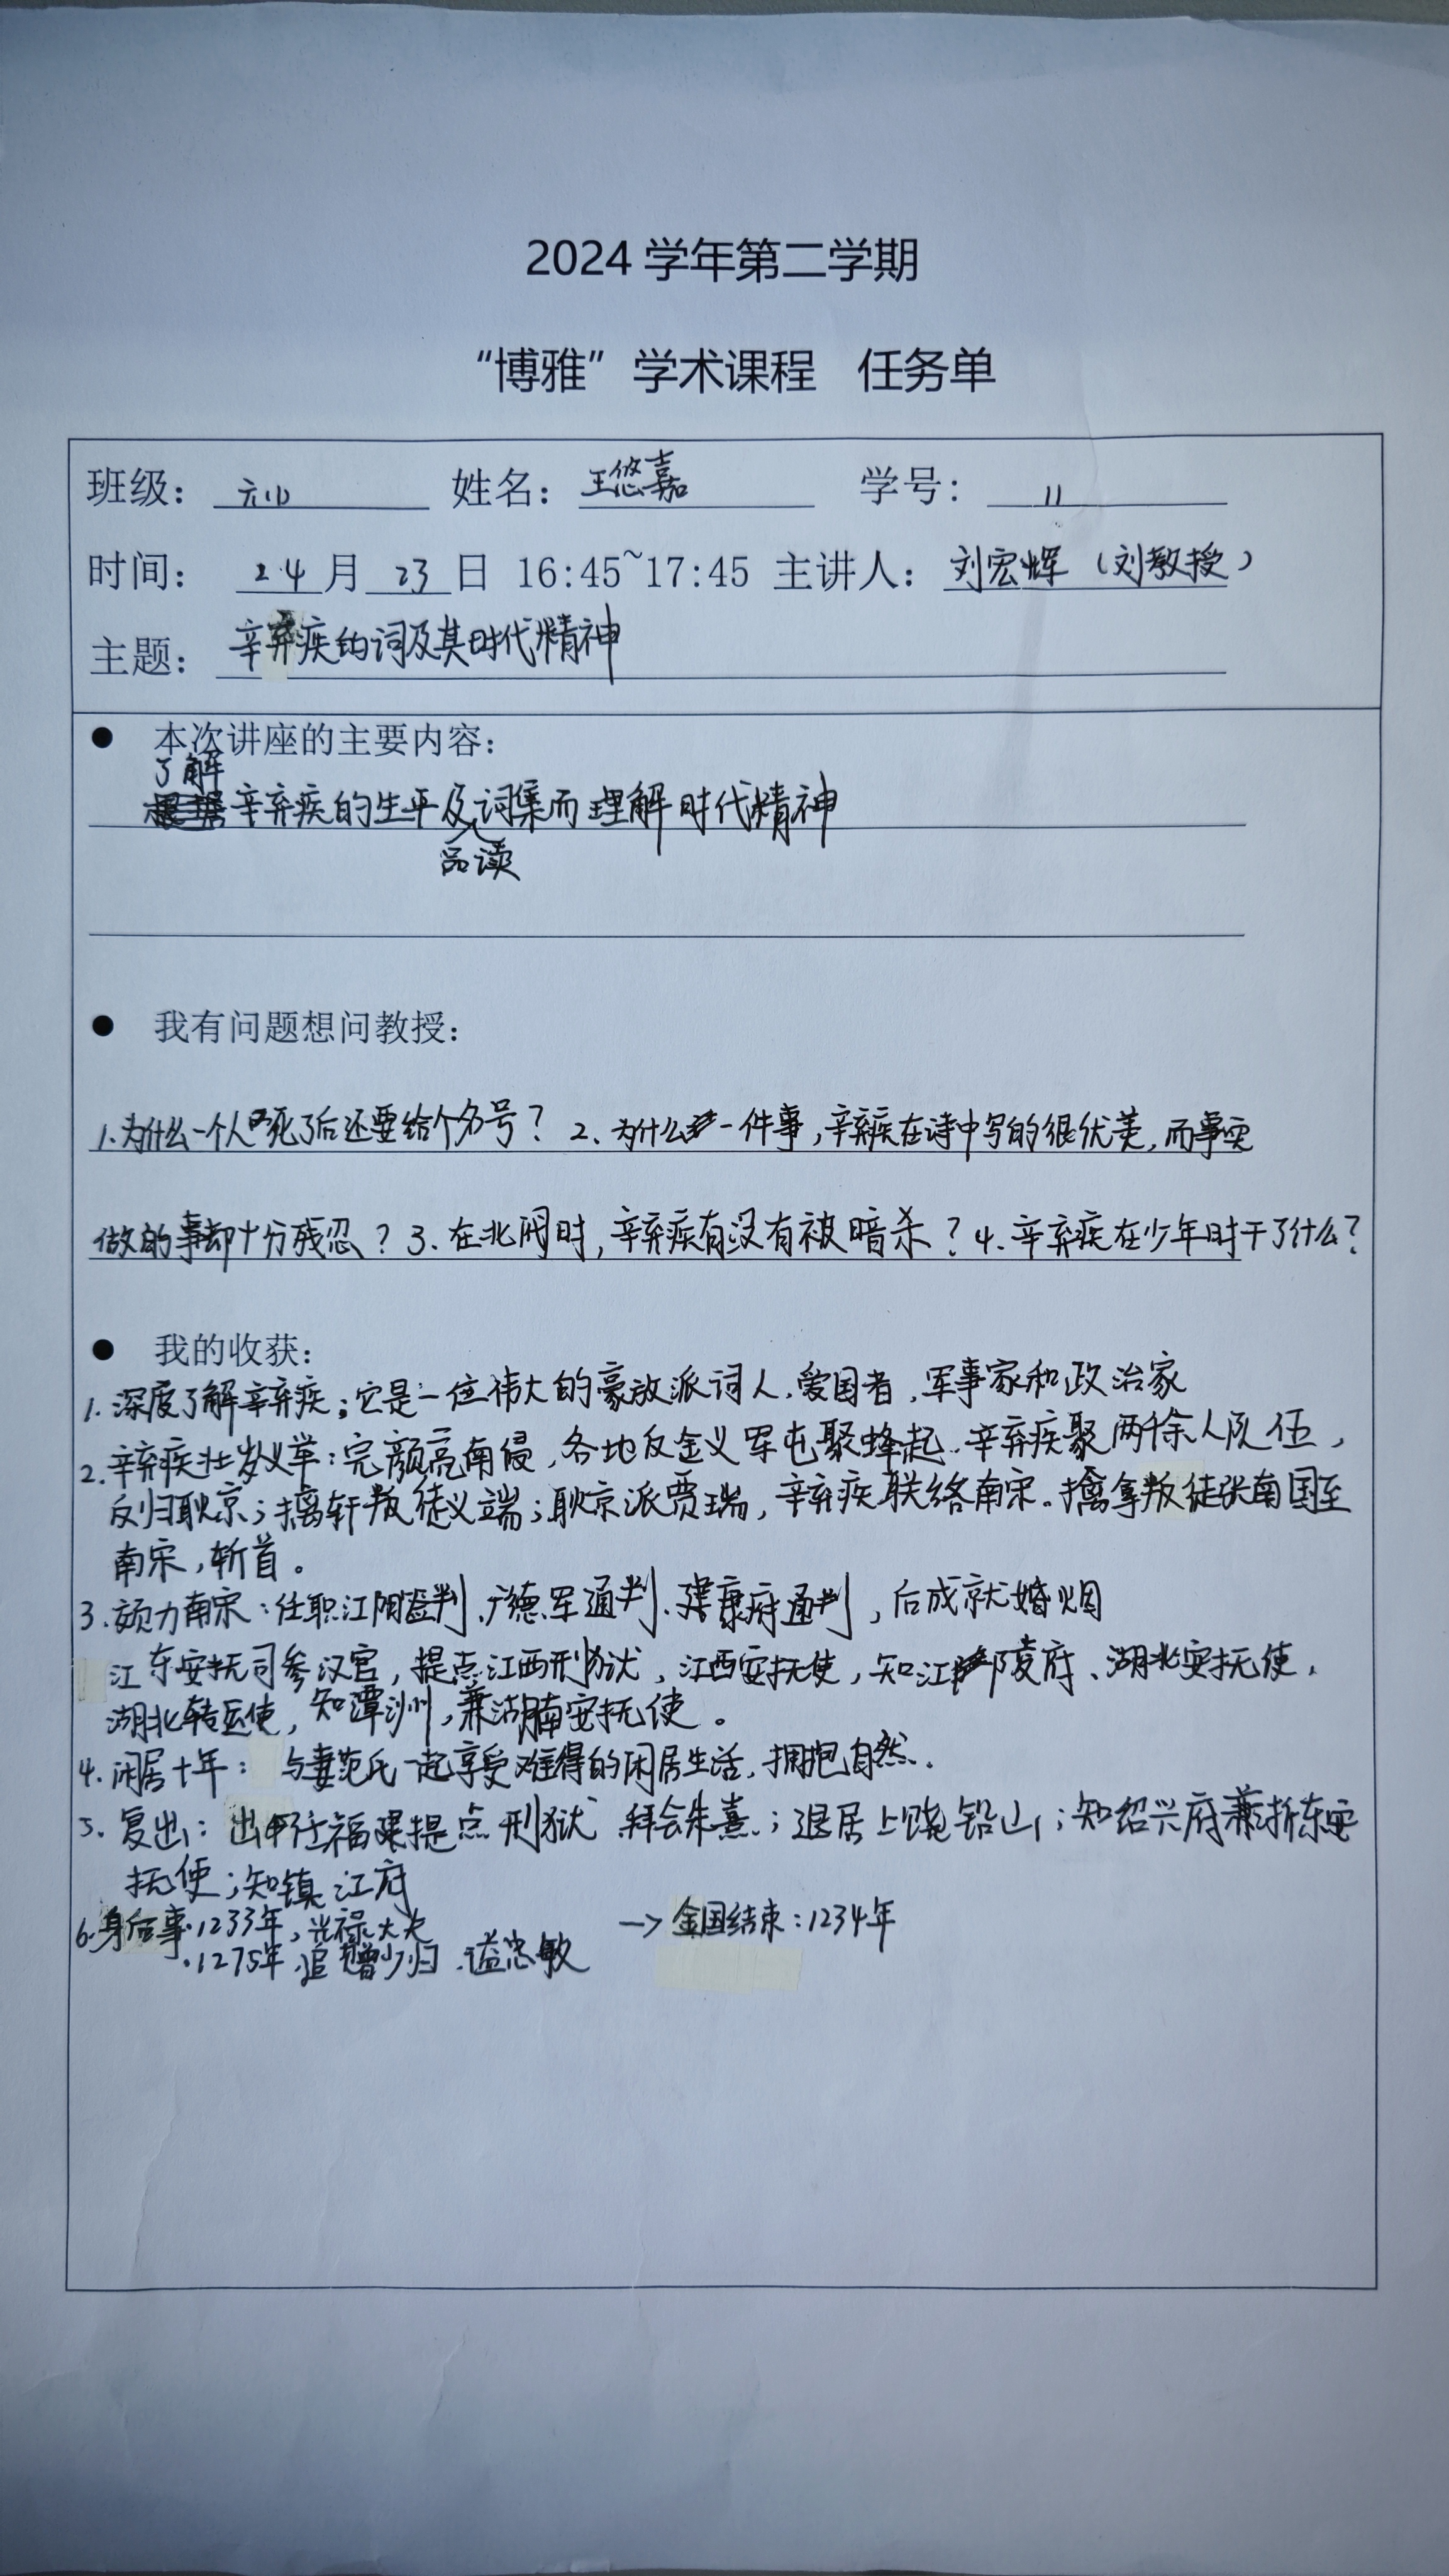 2024 学年第二学期
“博雅”学术课程 任务单
班级: 姓名: 王悠嘉 学号: 11
时间: 2.4 月 23 日 16:45~17:45 主讲人: 刘宏辉（刘教授）
主题: 辛弃疾的词及其时代精神
● 本次讲座的主要内容:
了解
辛弃疾的生平及词集而理解时代精神
品读
● 我有问题想问教授:
1.为什么一个人死了后还要给个名号? 2.为什么一件事,辛弃疾在诗中写的很优美,而事实
做的事却十分残忍? 3.在北阀时,辛弃疾有没有被暗杀? 4.辛弃疾在少年时干了什么?
● 我的收获:
1.深度了解辛弃疾;它是一位伟大的豪放派词人,爱国者,军事家和政治家
2.辛弃疾壮岁义举:完颜亮南侵,各地反金义军屯聚蜂起.辛弃疾聚两千余人队伍,
反归耿京;擒轩叛徒义端;耿京派贾瑞,辛弃疾联络南宋。擒拿叛徒张南国至
南宋,斩首。
3.力南宋:任职江阴签判、广德军通判、建康府通判,后成就婚烟
江东安抚司参汉官,提点江西刑狱,江西安抚使,知江陵府、湖北安抚使,
湖北转运使,知潭洲,兼湖南安抚使。
4.闲居十年: 与妻范氏一起享受难得的闲居生活,拥抱自然.
5.复出: 出任福建提点刑狱 拜会朱熹;退居上饶铅山;知绍兴府兼折东安
抚使;知镇江府
6.身后事·1233年,光禄大夫 → 金国结束:1234年
·1275年,追赠少归.谥忠敏